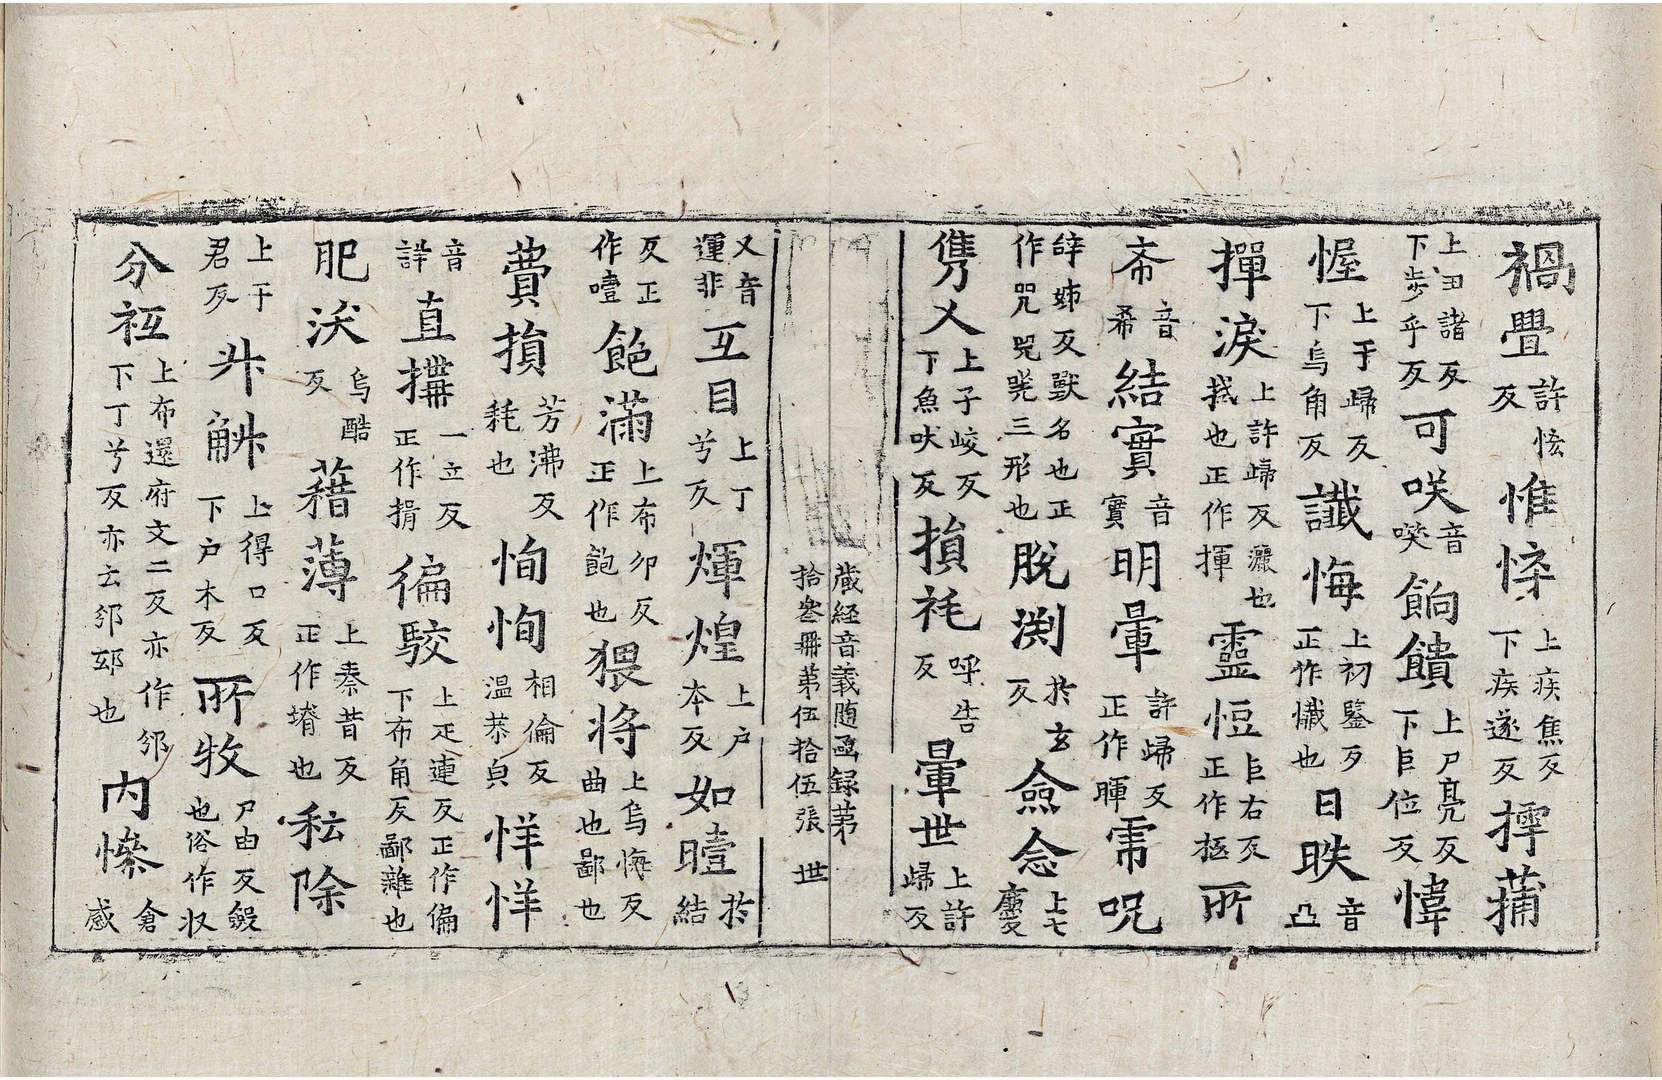 禍疊許㤥反惟悴上疾焦反下疾遂反摴蒱
上丑諸反下步乎反可咲音㗛餉饋上尸亮反下巨位反幃
幄上于歸反下烏角反讖悔上初鑒反正作懺也日昳音凸
揮淚上許歸反灑也拭也正作揮靈㤱巨右反正作柩所
斋音希結實音實明暈許歸反正作暉䨏呪
辞姊反獸名也正作咒咒兕三形也脫渕於玄反僉念上七
雋乂上子峻反下魚吠反損秏呼告反暈世上許歸反
藏經音義随函録苐拾叁冊苐伍拾伍張 世
又音運非互目上丁兮反煇煌上户本反如曀於結
反正作噎飽滿上布卯反正作飽也猥将上烏悔反曲也鄙也
費損芳沸反耗也恂恂相倫反温恭皃恱恱
音詳直撰一立反正作揖徧駮上疋連反正作偏下布角反鄙雜也
肥沃烏酷反藉薄上秦昔反正作塉也耘除
上于君反斗斛上得口反下户木反所牧尸由反錣也俗作収
分衽上布還府文二反亦作邠下丁兮反亦云邠邳也内慘倉感